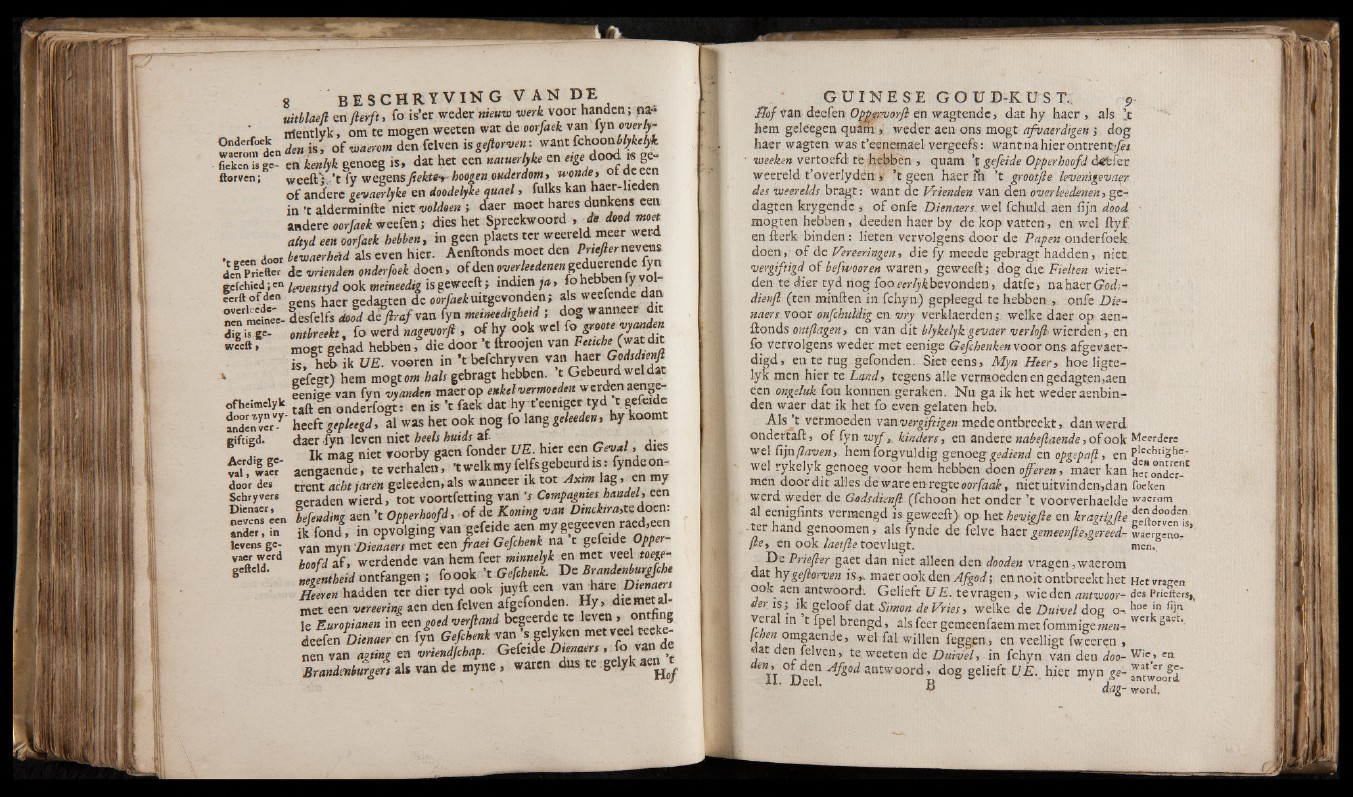 8 BESCHRYVING VAN DE
uitblaest en sterft, so is'er weder nieuw werk voor handen; na-
mentlyk, om te mogen weeten wat de oorsaek van syn overly-
den is, of waerom den selven is gestorven: want schoon blykelyk
en kenlyk genoeg is, dat het een natuerlyke en eige dood is ge-
weest; 't sy wegens siekte, hoogen ouderdom, wonde, of de een
of andere gevaerlyke en doodelyke quael, sulks kan haer-lieden
in 't alderminste niet voldoen; daer moet hares dunkens een
andere oorsaek weesen; dies het Spreekwoord, de dood moet
altyd een oorsaek hebben, in geen plaets ter weereld meer werd
bewaerheid als even hier. Aenstonds moet den Priester nevens
de vrienden ondersoek doen, of den overleedenen geduerende syn
levenstyd ook meineedig is geweest; indien ja, so hebben sy vol-
gens haer gedagten de oorsaek uitgevonden; als weesende dan
desselfs dood de straf van syn meineedigheid; dog wanneer dit
ontbreekt, so werd nagevorst, of hy ook wel so groote vyanden
mogt gehad hebben, die door 't stroojen van Fetiche (wat dit
is, heb ik UE. vooren in 't beschryven van haer Godsdienst
gesegt) hem mogt om hals gebragt hebben. 't Gebeurd wel dat
eenige van syn vyanden maer op enkel vermoeden werden aenge-
tast en ondersogt: en is 't saek dat hy t'eeniger tyd 't geseide
heeft gepleegd, al was het ook nog so lang geleeden, hy koomt
daer syn leven niet heels huids af.
Ik mag niet voorby gaen sonder UE. hier een Geval, dies
aengaende, te verhalen, 't welk my selfs gebeurd is: synde on-
trent acht jaren geleeden, als wanneer ik tot Axim lag, en my
geraden wierd, tot voortsetting van 's Compagnies handel, een
besending aen 't Opperhoofd, of de Koning van Dinckira, te doen:
ik sond, in opvolging van geseide aen my gegeeven raed, een
van myn Dienaers met een fraei Geschenk na 't geseide Opper-
hoofd af, werdende van hem seer minnelyk en met veel toege-
negentheid ontfangen; so ook 't Geschenk. De Brandenburgsche
Heeren hadden ter dier tyd ook juyst een van hare Dienaers
met een vereering aen den selven afgesonden. Hy, die met al-
le Europianen in een goed verstand begeerde te leven, ontfing
deesen Dienaer en syn Geschenk van 's gelyken met veel teeke-
nen van agting en vriendschap. Geseide Dienaers, so van de
Brandenburgers als van de myne, waren dus te gelyk aen 't
Hof
Ondersoek
waerom den
sieken is ge-
storven;
't geen door
den Priester
geschied; en
eerst of den
overleede-
nen meinee-
dig is ge-
weest,
of heimelyk
door zyn vy-
anden ver-
giftigd.
Aerdig ge-
val, waer
door des
Schryvers
Dienaer,
nevens een
ander, in
levens ge-
vaer werd
gesteld.
GUINESE GOUD-KUST. 9
Hof van deesen Oppervorst en wagtende, dat hy haer, als 't
hem geleegen quam, weder aen ons mogt afvaerdigen; dog
haer wagten was t'eenemael vergeefs: want na hier ontrent ses
weeken vertoefd te hebben, quam 't geseide Opperhoofd deeser
weereld t'overlyden, 't geen haer in 't grootste levensgevaer
des weerelds bragt: want de Vrienden van den overleedenen, ge-
dagten krygende, of onse Dienaers wel schuld aen sijn dood
mogten hebben, deeden haer by de kop vatten, en wel styf
en sterk binden: lieten vervolgens door de Papen ondersoek
doen, of de Vereeringen, die sy meede gebragt hadden, niet
vergiftigd of beswooren waren, geweest; dog die Fielten wier-
den te dier tyd nog soo eerlyk bevonden, datse, na haer Gods-
dienst (ten minsten in schyn) gepleegd te hebben, onse Die-
naers voor onschuldig en vry verklaerden; welke daer op aen-
stonds ontslagen, en van dit blykelyk gevaer verlost wierden, en
so vervolgens weder met eenige Geschenken voor ons afgevaer-
digd, en te rug gesonden. Siet eens, Myn Heer, hoe ligte-
lyk men hier te Land, tegens alle vermoeden en gedagten, aen
een ongeluk sou konnen geraken. Nu ga ik het weder aenbin-
den waer dat ik het so even gelaten heb.
Als 't vermoeden van vergiftigen mede ontbreekt, dan werd
ondertast, of syn wyf, kinders, en andere nabestaende, of ook
wel sijn slaven, hem sorgvuldig genoeg gediend en opgepast, en
wel rykelyk genoeg voor hem hebben doen offeren, maer kan
men door dit alles de ware en regte oorsaak, niet uitvinden, dan
werd weder de Godsdienst (schoon het onder 't voorverhaelde
al eenigsints vermengd is geweest) op het hevigste en kragtigste
ter hand genoomen, als synde de selve haer gemeenste, gereed-
ste, en ook laetste toevlugt.
De Priester gaet dan niet alleen den dooden vragen, waerom
dat hy gestorven is, maer ook den Afgod; en noit ontbreekt het
ook aen antwoord. Gelieft UE. te vragen, wie den antwoor-
der is; ik geloof dat Simon de Vries, welke de Duivel dog o-
veral in 't spel brengd, als seer gemeensaem met sommige men-
schen omgaende, wel sal willen seggen, en veelligt sweeren,
dat den selven, te weeten de Duivel, in schyn van den doo-
den, of den Afgod antwoord, dog gelieft UE. hier myn ge-
II. Deel. B dag-
Meerdere
plechtighe-
den ontrent
het onder-
soeken
waerom
den dooden
gestorven is,
waergeno-
men.
Het vragen
des Priesters,
hoe in sijn
werk gaet.
Wie, en
wat'er ge-
antwoord
word.